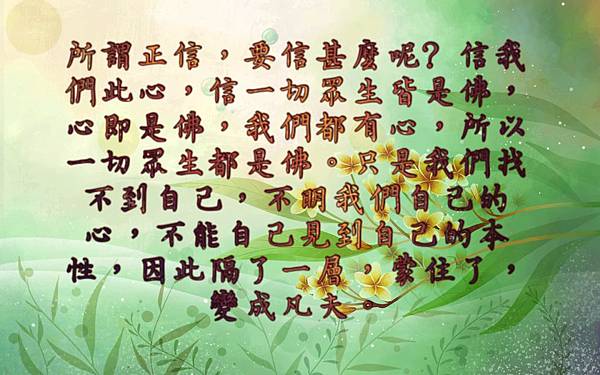 所謂正信，要信甚麼呢？信我
們此心，信一切眾生皆是佛，
心即是佛，我們都有心，所以
一切眾生都是佛。只是我們找
不到自己，不明我們自己的
心，不能自己見到自己的本
性，因此隔了一層，蒙住了，
變成凡夫。